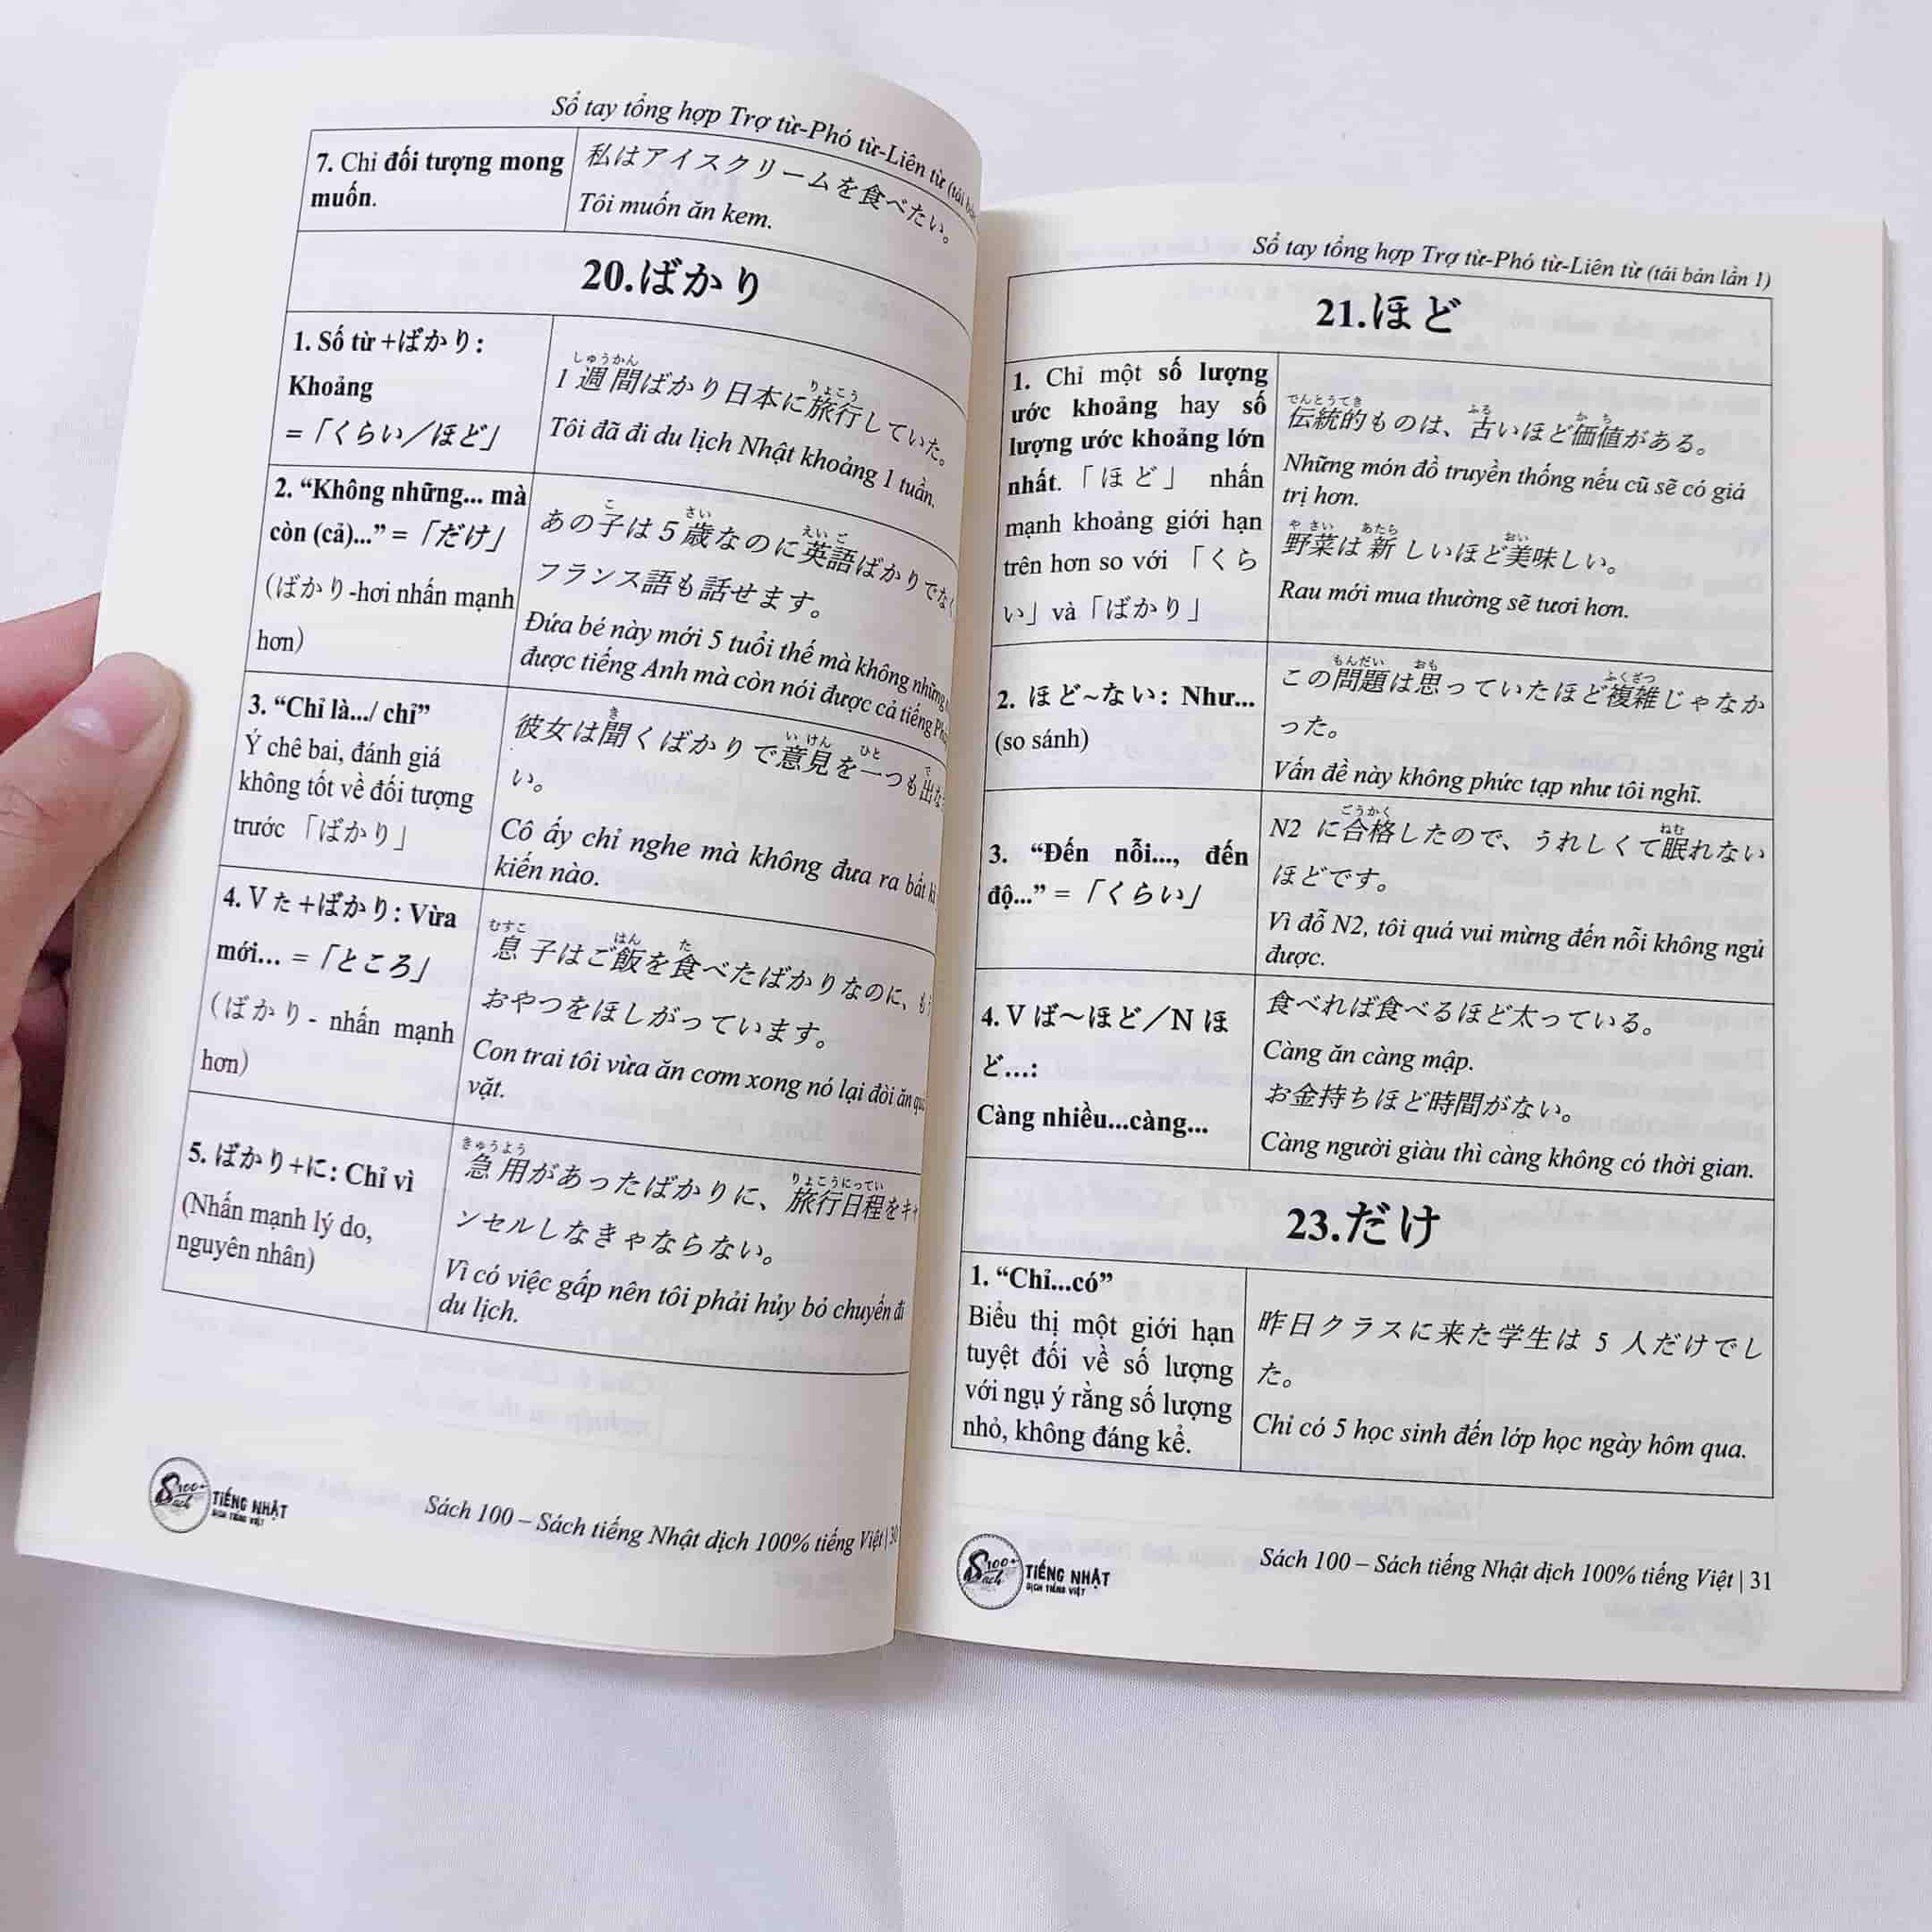 Sổ tay tổng hợp Trợ từ-Phó từ-Liên từ (tái bản
7. Chỉ đối tượng mong
muốn.
私はアイスクリームを食べたい。
Tôi muốn ăn kem.
20.ばかり
1. Số từ +ばかり:
Khoảng
=「くらい/ほど」
しゅうかん りょこう
1 週間ばかり日本に旅行していた。
Tôi đã đi du lịch Nhật khoảng 1 tuần.
2. “Không những... mà
còn (cả)...” =「だけ」
(ばかり-hơi nhấn mạnh
hơn)
こ さい えいご
あの子は5歳なのに英語ばかりでなく
フランス語も話せます。
Đứa bé này mới 5 tuổi thế mà không những
được tiếng Anh mà còn nói được cả tiếng
3. “Chỉ là.../ chỉ”
Ý chê bai, đánh giá
không tốt về đối tượng
trước 「ばかり」
き いけん ひと で
彼女は聞くばかりで意見を一つも出な
い。
Cô ấy chỉ nghe mà không đưa ra bất
kiến nào.
4. V た +ばかり: Vừa
mới... =「ところ」
(ばかり- nhấn mạnh
hơn)
むすこ はん た
息子はご飯を食べたばかりなのに、も
おやつをほしがっています。
Con trai tôi vừa ăn cơm xong nó lại đòi ăn
vặt.
5. ばかり+に: Chỉ vì
(Nhấn mạnh lý do,
nguyên nhân)
きゅうよう りょこうにってい
急用があったばかりに、旅行日程をキャ
ンセルしなきゃならない。
Vì có việc gấp nên tôi phải hủy bỏ chuyến đi
du lịch.
Sách 100+
TIẾNG NHẬT
DỊCH TIẾNG VIỆT
Sách 100 – Sách tiếng Nhật dịch 100% tiếng Việt | 30
Sổ tay tổng hợp Trợ từ-Phó từ-Liên từ (tái bản lần 1)
21.ほど
1. Chỉ một số lượng
ước khoảng hay số
lượng ước khoảng lớn
nhất.「ほど」 nhấn
mạnh khoảng giới hạn
trên hơn so với 「くら
い」và「ばかり」
でんとうてき ふる かち
伝統的ものは、古いほど価値がある。
Những món đồ truyền thống nếu cũ sẽ có giá
trị hơn.
やさい あたら おい
野菜は新しいほど美味しい。
Rau mới mua thường sẽ tươi hơn.
2. ほど~ない: Như...
(so sánh)
もんだい おも ふくざつ
この問題は思っていたほど複雑じゃなか
った。
Vấn đề này không phức tạp như tôi nghĩ.
3. “Đến nỗi..., đến
độ...” =「くらい」
ごうかく ねむ
N2 に合格したので、うれしくて眠れない
ほどです。
Vì đỗ N2, tôi quá vui mừng đến nỗi không ngủ
được.
4. V ば～ほど/N ほ
ど...:
Càng nhiều...càng...
食べれば食べるほど太っている。
Càng ăn càng mập.
お金持ちほど時間がない。
Càng người giàu thì càng không có thời gian.
23.だけ
1. “Chỉ...có”
Biểu thị một giới hạn
tuyệt đối về số lượng
với ngụ ý rằng số lượng
nhỏ, không đáng kể.
昨日クラスに来た学生は 5 人だけでし
た。
Chỉ có 5 học sinh đến lớp học ngày hôm qua.
Sách 100+
TIẾNG NHẬT
DỊCH TIẾNG VIỆT
Sách 100 – Sách tiếng Nhật dịch 100% tiếng Việt | 31